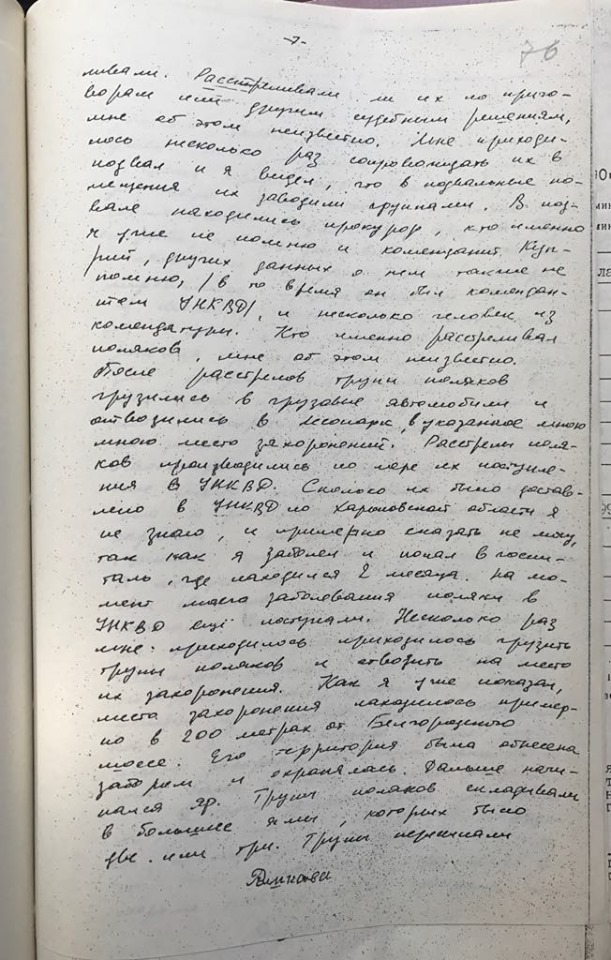 -7-
76
ливали. Расстреливали ли их по приго-
ворам или другим судебным решениям,
мне об этом неизвестно. Мне приходи-
лось несколько раз сопровождать их в
подвал и я видел, что в подвальные по-
мещения их заводили группами. В под-
вале находились прокурор, кто именно
я уже не помню и комендант Куп-
рий, других данных о нем также не
помню, /в то время он был комендан-
том УНКВД/, и несколько человек из
комендатуры. Кто именно расстреливал
поляков, мне об этом неизвестно.
После расстрелов трупы поляков
грузились в грузовые автомобили и
отвозились в лесопарк, в указанное мною
мною место захоронений. Расстрелы поля-
ков производились по мере их поступле-
ния в УНКВД. Сколько их было достав-
лено в УНКВД по Харьковской области я
не знаю, и примерно сказать не могу,
так как я заболел и попал в госпи-
таль, где находился 2 месяца. На мо-
мент моего заболевания поляки в
УНКВД ещё поступали. Несколько раз
мне приходилось приходилось грузить
трупы поляков и отвозить на место
их захоронения. Как я уже показал,
место захоронения находилось пример-
но в 200 метрах от Белгородского
шоссе. Его территория была обнесена
забором и охранялась. Дальше начи-
нался яр. Трупы поляков складывали
в большие ямы, которых было
две или три. Трупы пересыпали